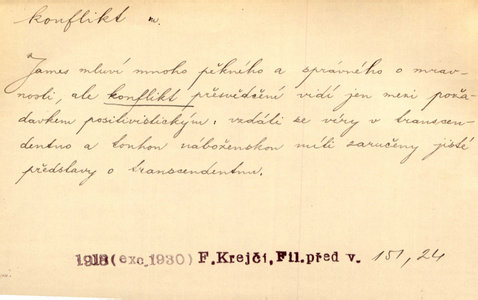 konflikt m.
James mluví mnoho pěkného a správného o mrav-
nosti, ale konflikt přesvědčení vidí jen mezi poža-
davkem positivistickým: vzdáti se víry v transcen-
dentno a touhou náboženskou míti zaručeny jisté
představy o transcendentnu.
1918(exc.1930) F.Krejčí,Fil.před v. 151,24